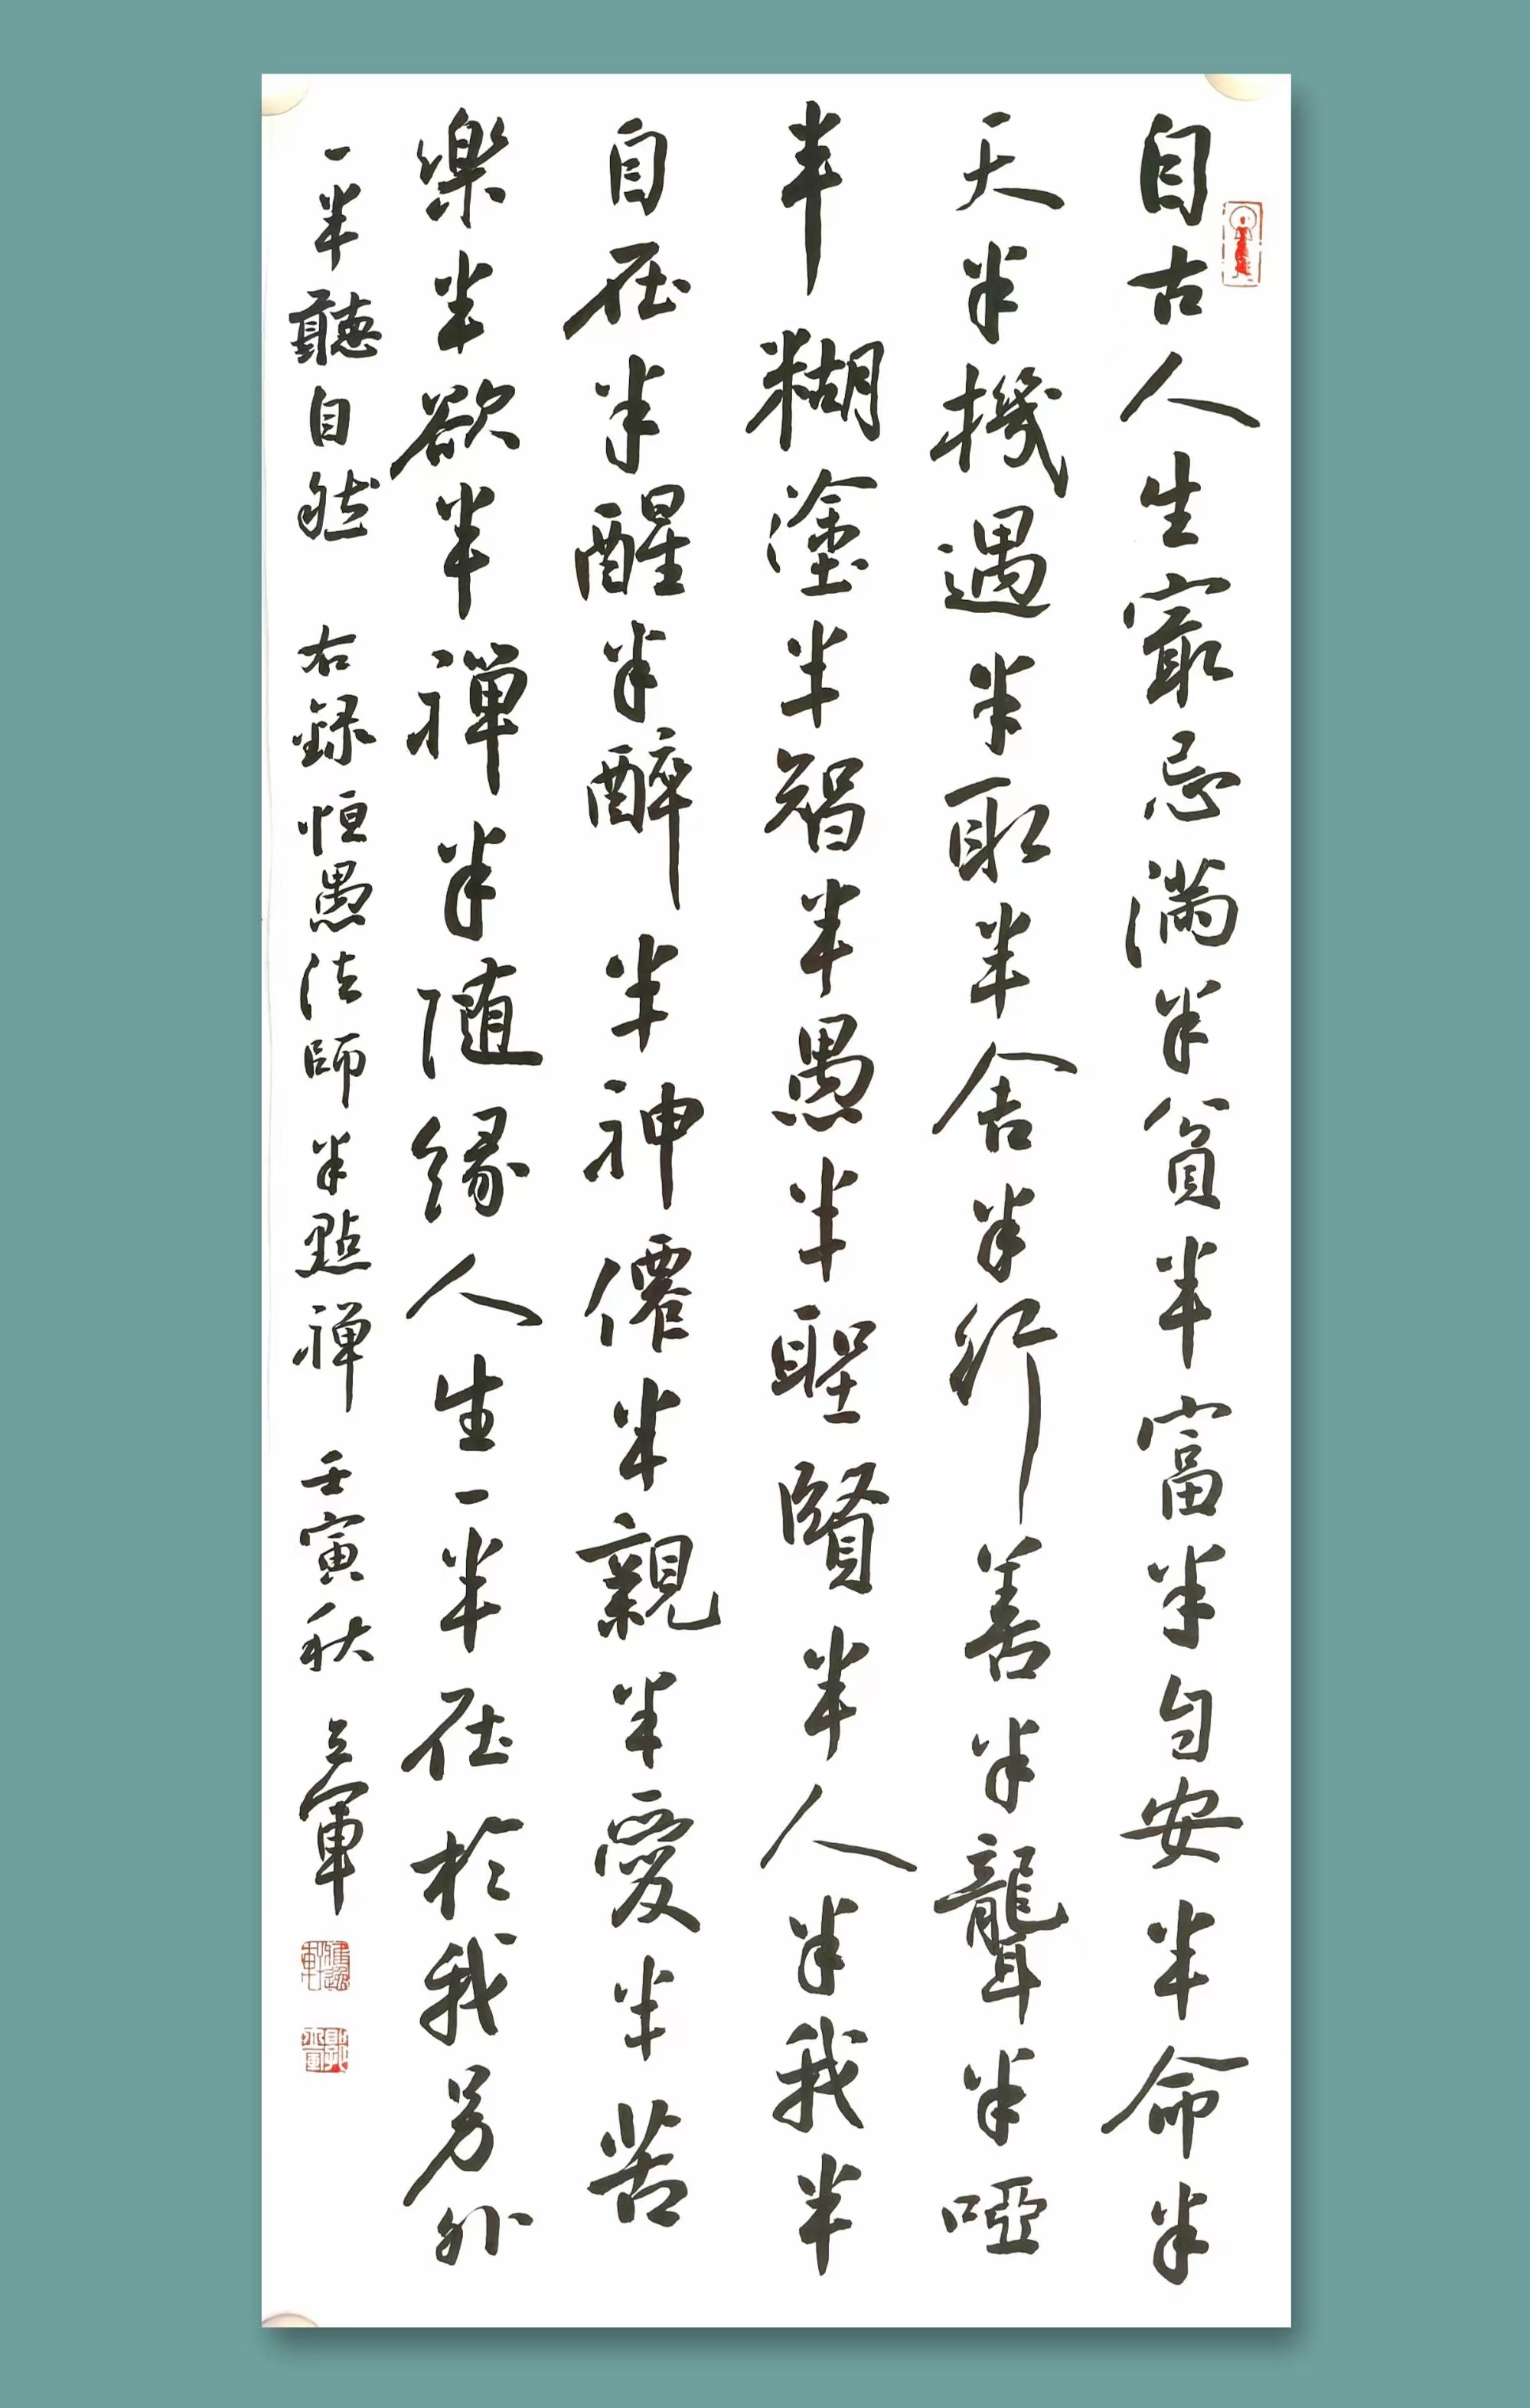 自古人生最忌满半貧半富半自安半命半
天半機遇半取半舍半行善半聾半啞
半糊塗半智半愚半聖賢半人半我半
自在半醒半醉半神僊半親半愛半苦
樂半欲半禅半随緣人生一半在於我另外
一半聽自然 右録恒愚法師半點禅 壬寅秋 立軍